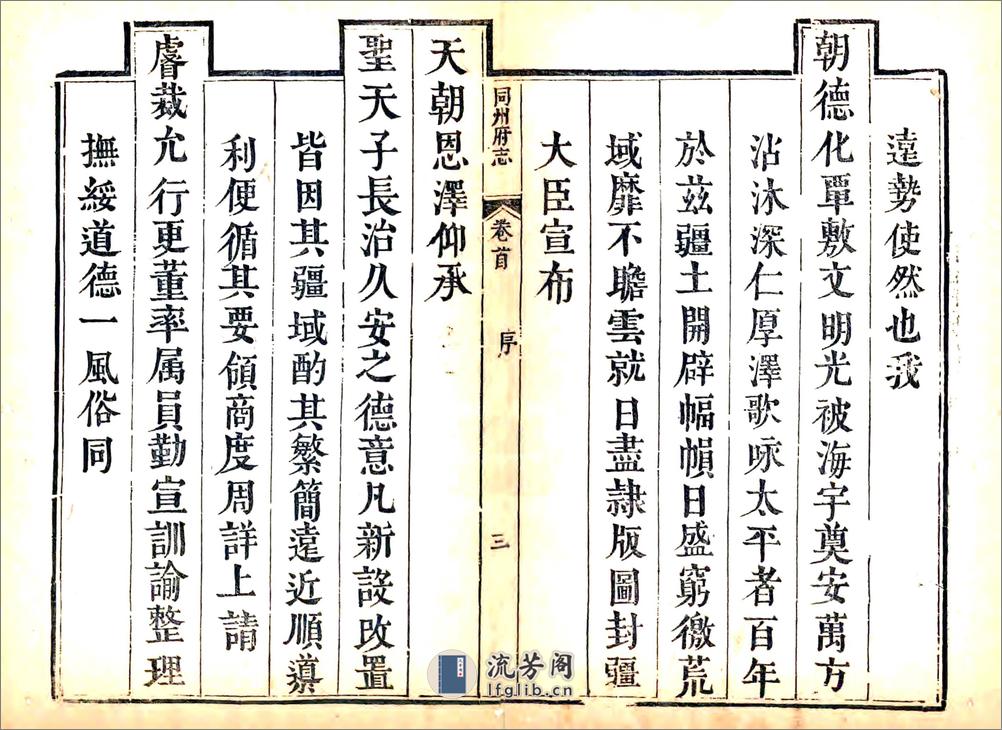 遠勢使然也我
朝德化覃敷文明光被海宇奠安萬方
沾沐深仁厚澤歌咏太平者百年
於茲疆土開辟幅幀日盛窮徼荒
域靡不瞻雲就日盡隷版圖封疆
大臣宣布
同州府志
卷首
序
三
天朝恩澤仰承
聖天子長治久安之德意凡新設改置
皆因其疆域酌其繁簡遠近順導
利便循其要領商度周詳上請
睿裁允行更董率属員勤宣訓諭整理
撫綏道德一風俗同
流芳阁
lfglib.cn